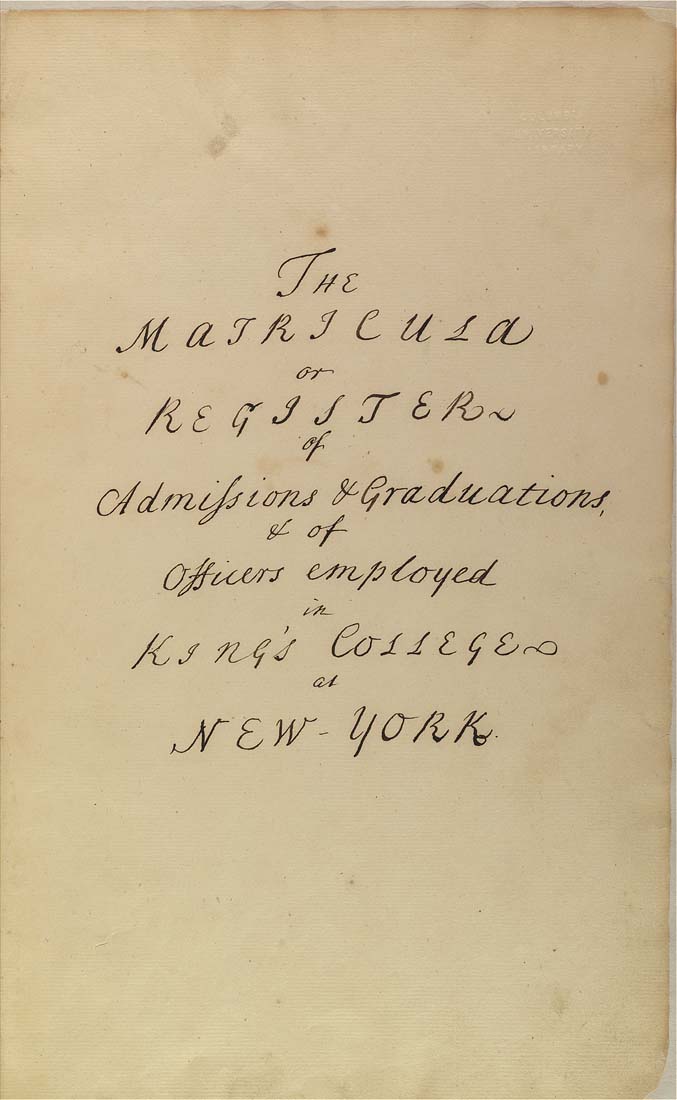 The
MATRICULA
or
REGISTER
of
Admiſsions & Graduations,
& of
Officers employed
in
KING's COLLEGE
at
NEW-YORK.
COLUMBIA
UNIVERSITY
LIBRARY